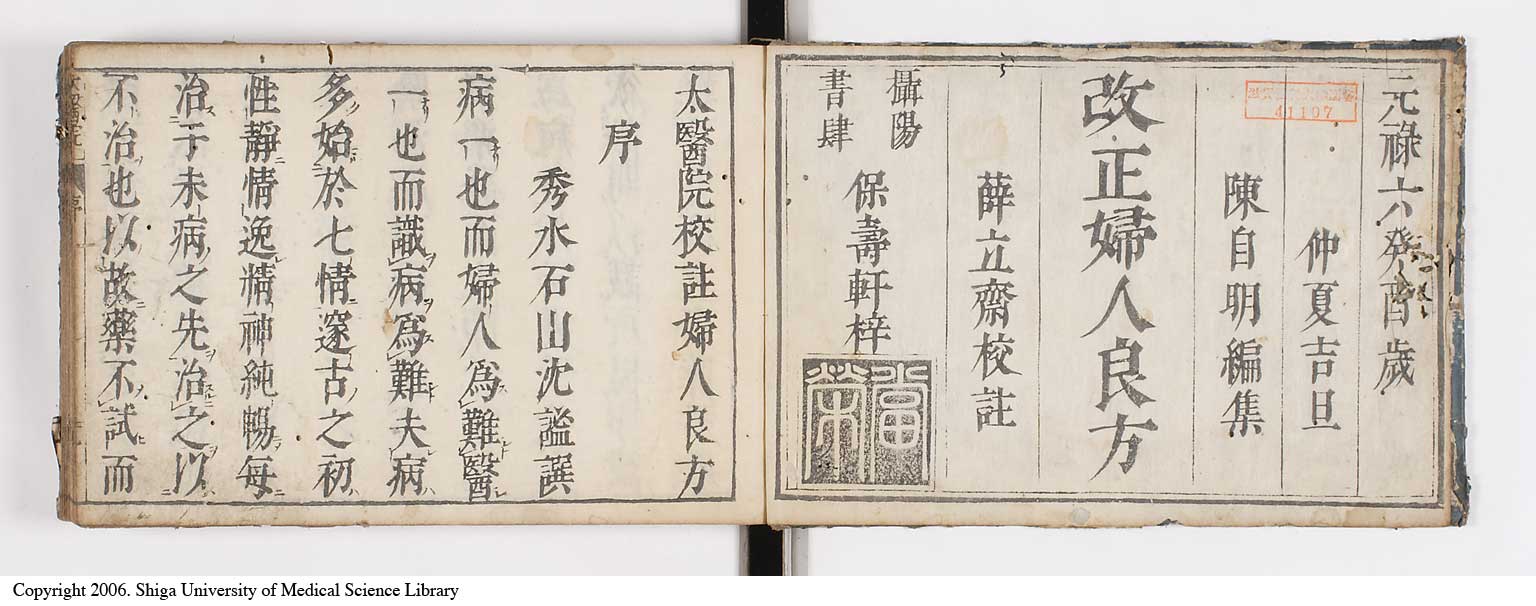 元祿六癸酉歲
仲夏吉旦
陳自明編集
改正婦人良方
薛立齋校註
攝陽
書肆
保壽軒梓
41197
太醫院校註婦人良方
序
秀水石山沈謐譔
病一也而婦人為難醫
一也而識病為難夫病
多始於七情邃古之初
性靜情逸精神純暢每
治于未病之先治之以
不治也以故藥不試而
Copyright 2006. Shiga University of Medical Science Library